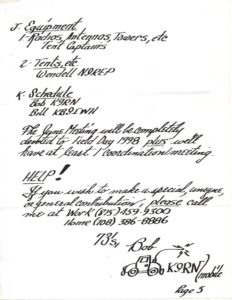 J- Equipment
1- Radios, Antennas, Towers, etc
Tent Captains
2- Tents, etc.
Wendell N9REP
K- Schedule
Bob K9RN
Bill KB9EWH
The June Meeting will be completely
devoted to Field Day 1998 plus we'll
have at least 1 coordination meeting.
HELP!
If you wish to make a special, unique,
or general contribution, please call
me at Work (815) 459-9500
Home (708) 386-8886
73's,
Bob
K9RN/mobile
Page 5